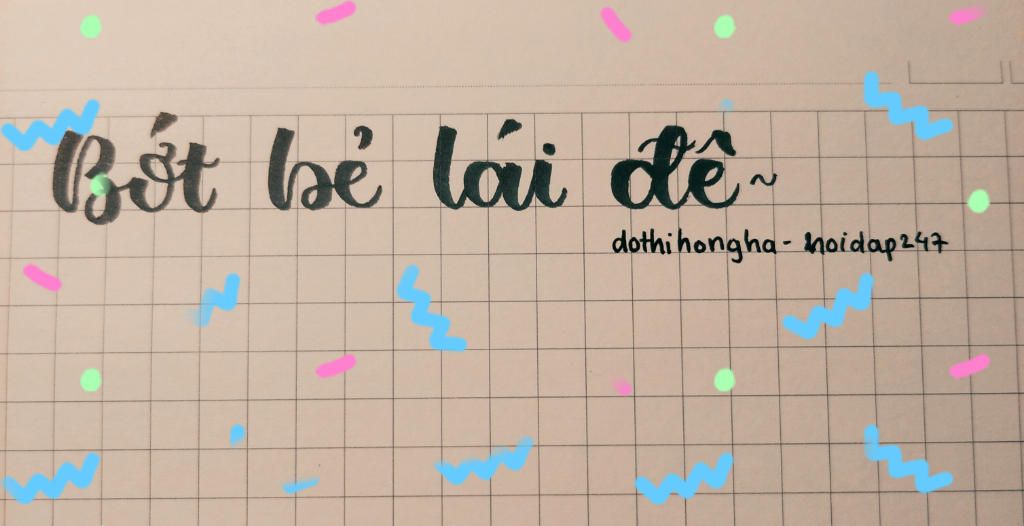 Bớt bẻ lái đê~
dothihongha - hoidap247